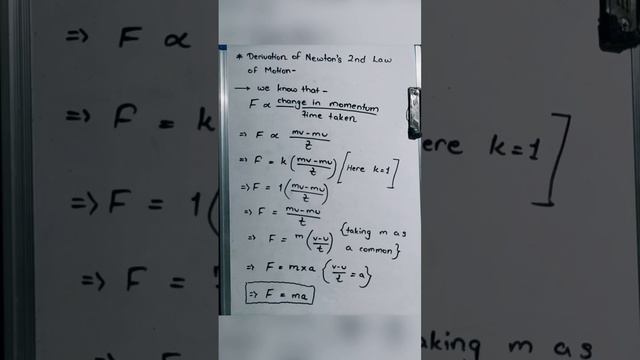 * Derivation of Newton's 2nd Law
of Motion-
→ we know that -
F ∝ change in momentum / Time taken
⇒ F ∝ mv-mu / t
⇒ F = k (mv-mu / t) [Here k=1]
⇒ F = 1 (mv-mu / t)
⇒ F = mv-mu / t
⇒ F = m (v-u / t) {taking m as
a common}
⇒ F = m×a {v-u / t = a}
⇒ F = ma